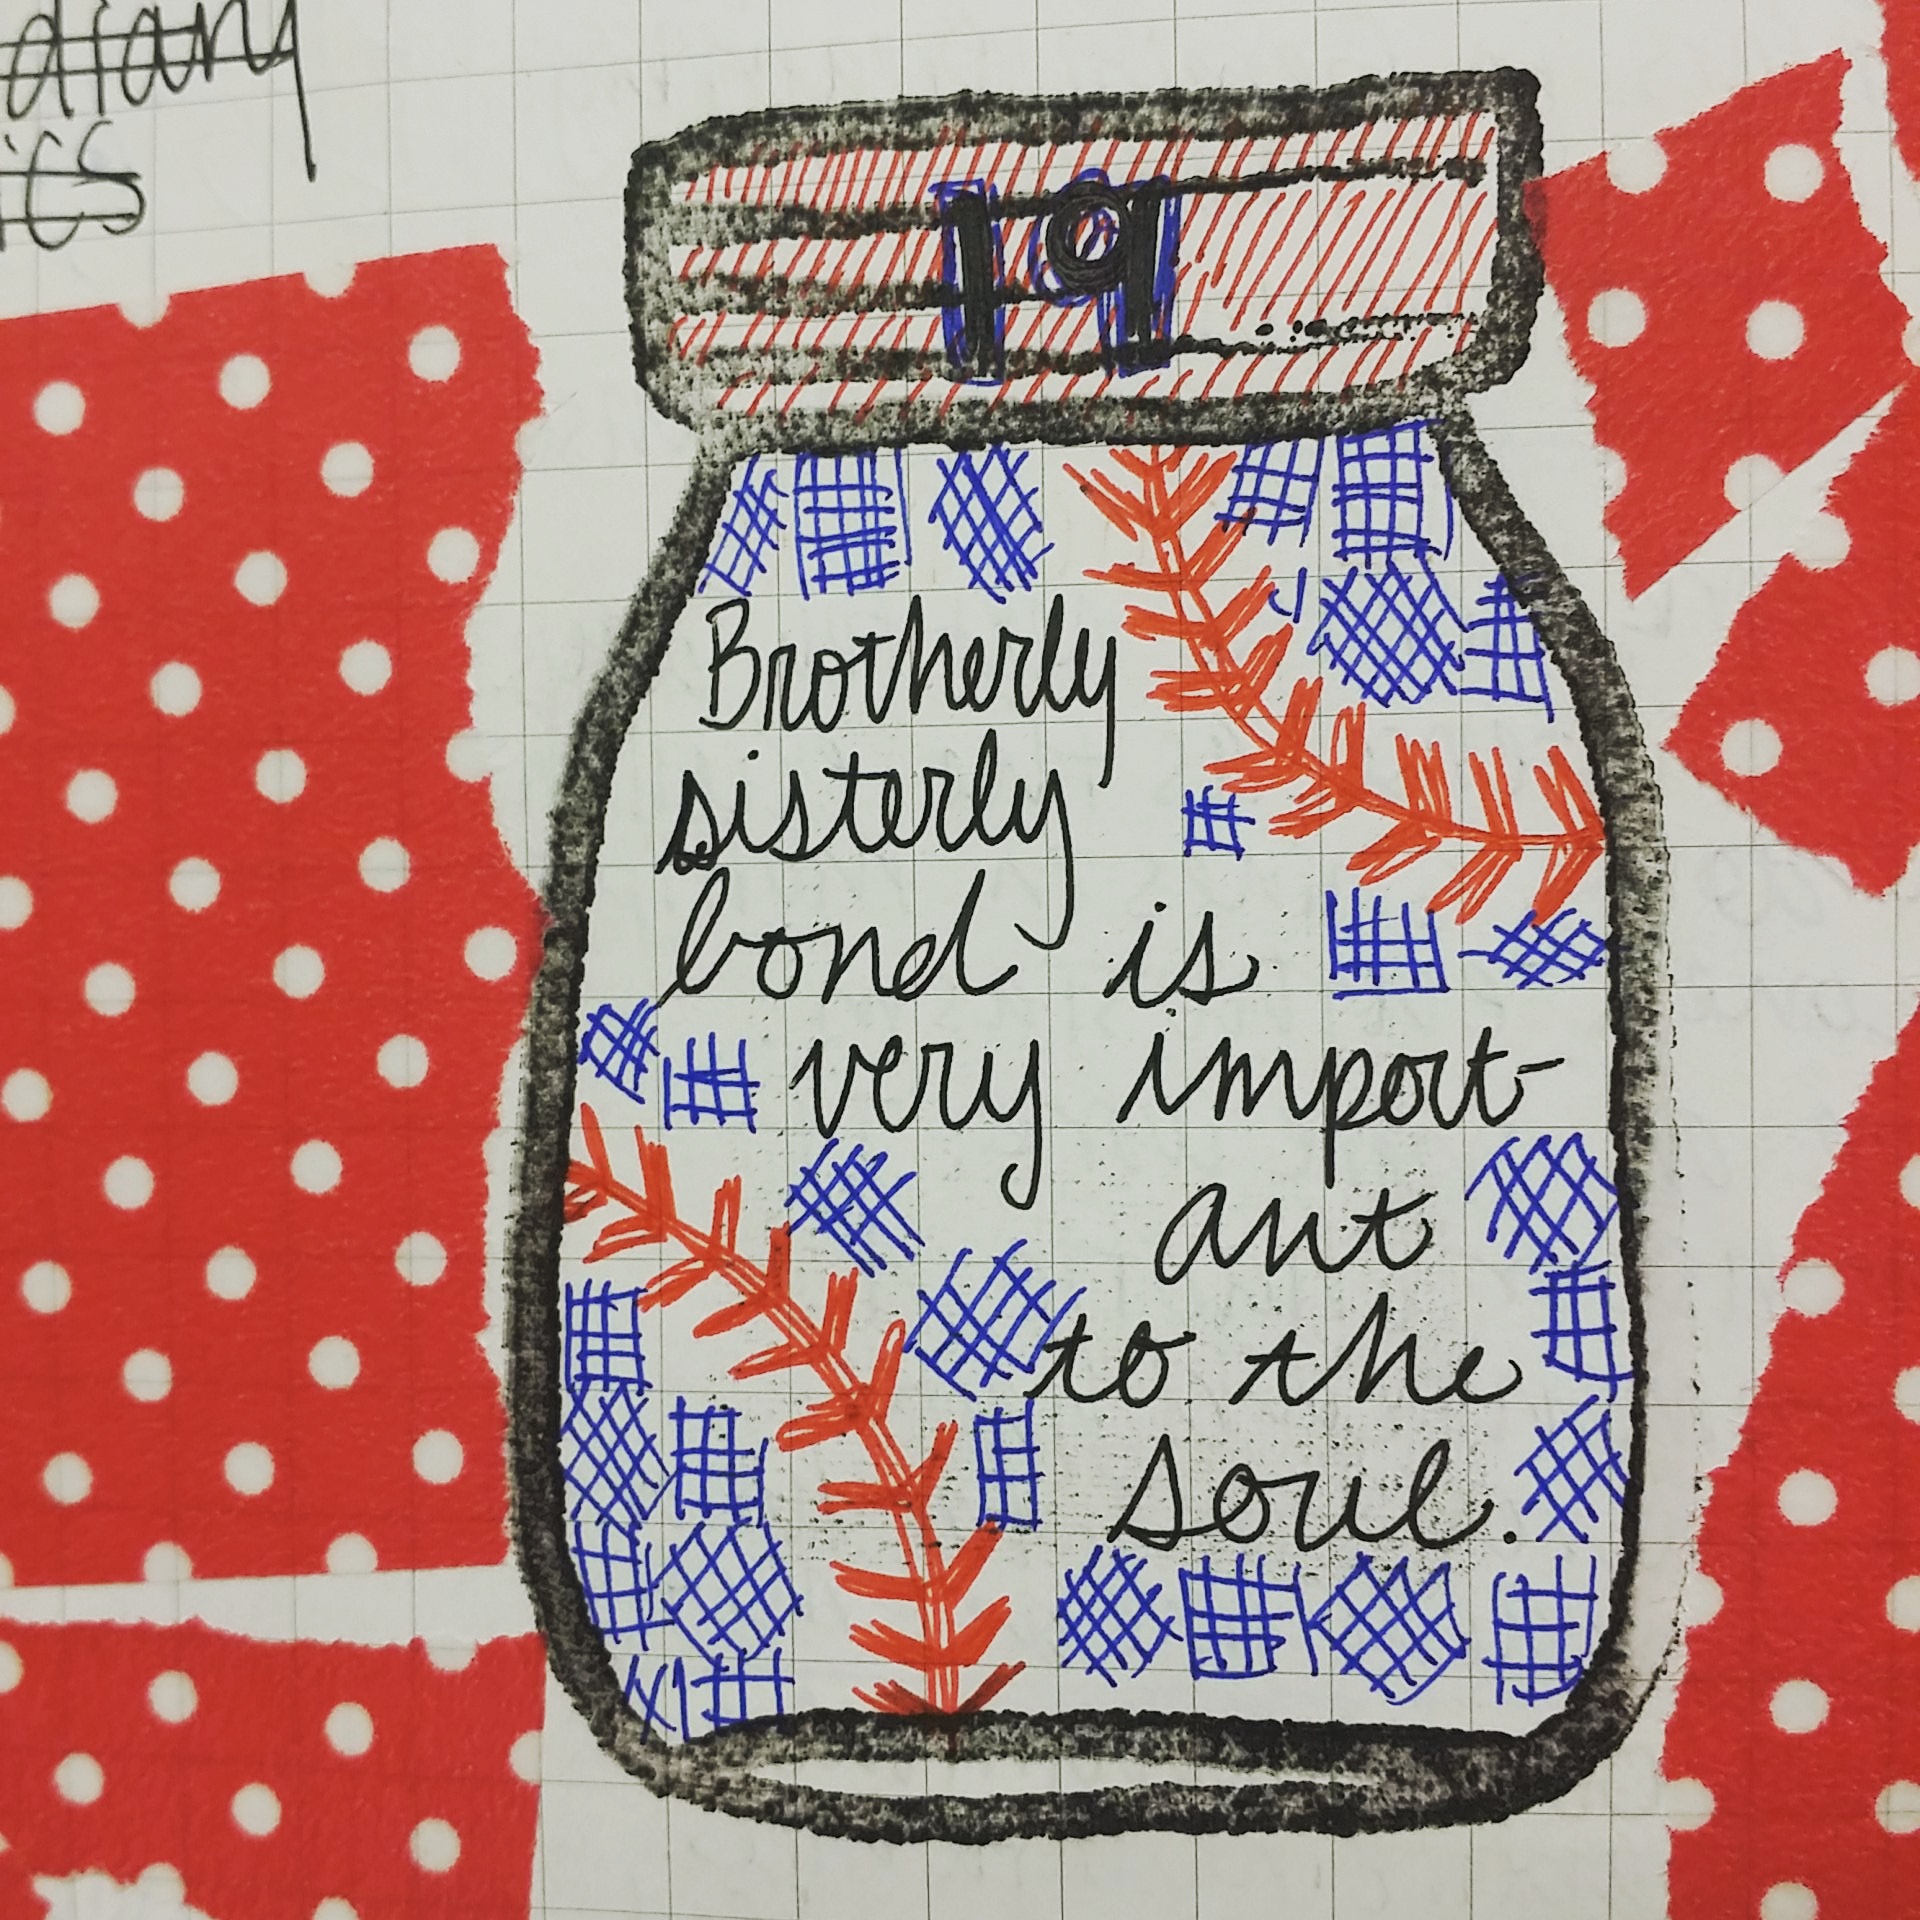 19
Brotherly
sisterly
bond is
very import-
ant
to the
soul.